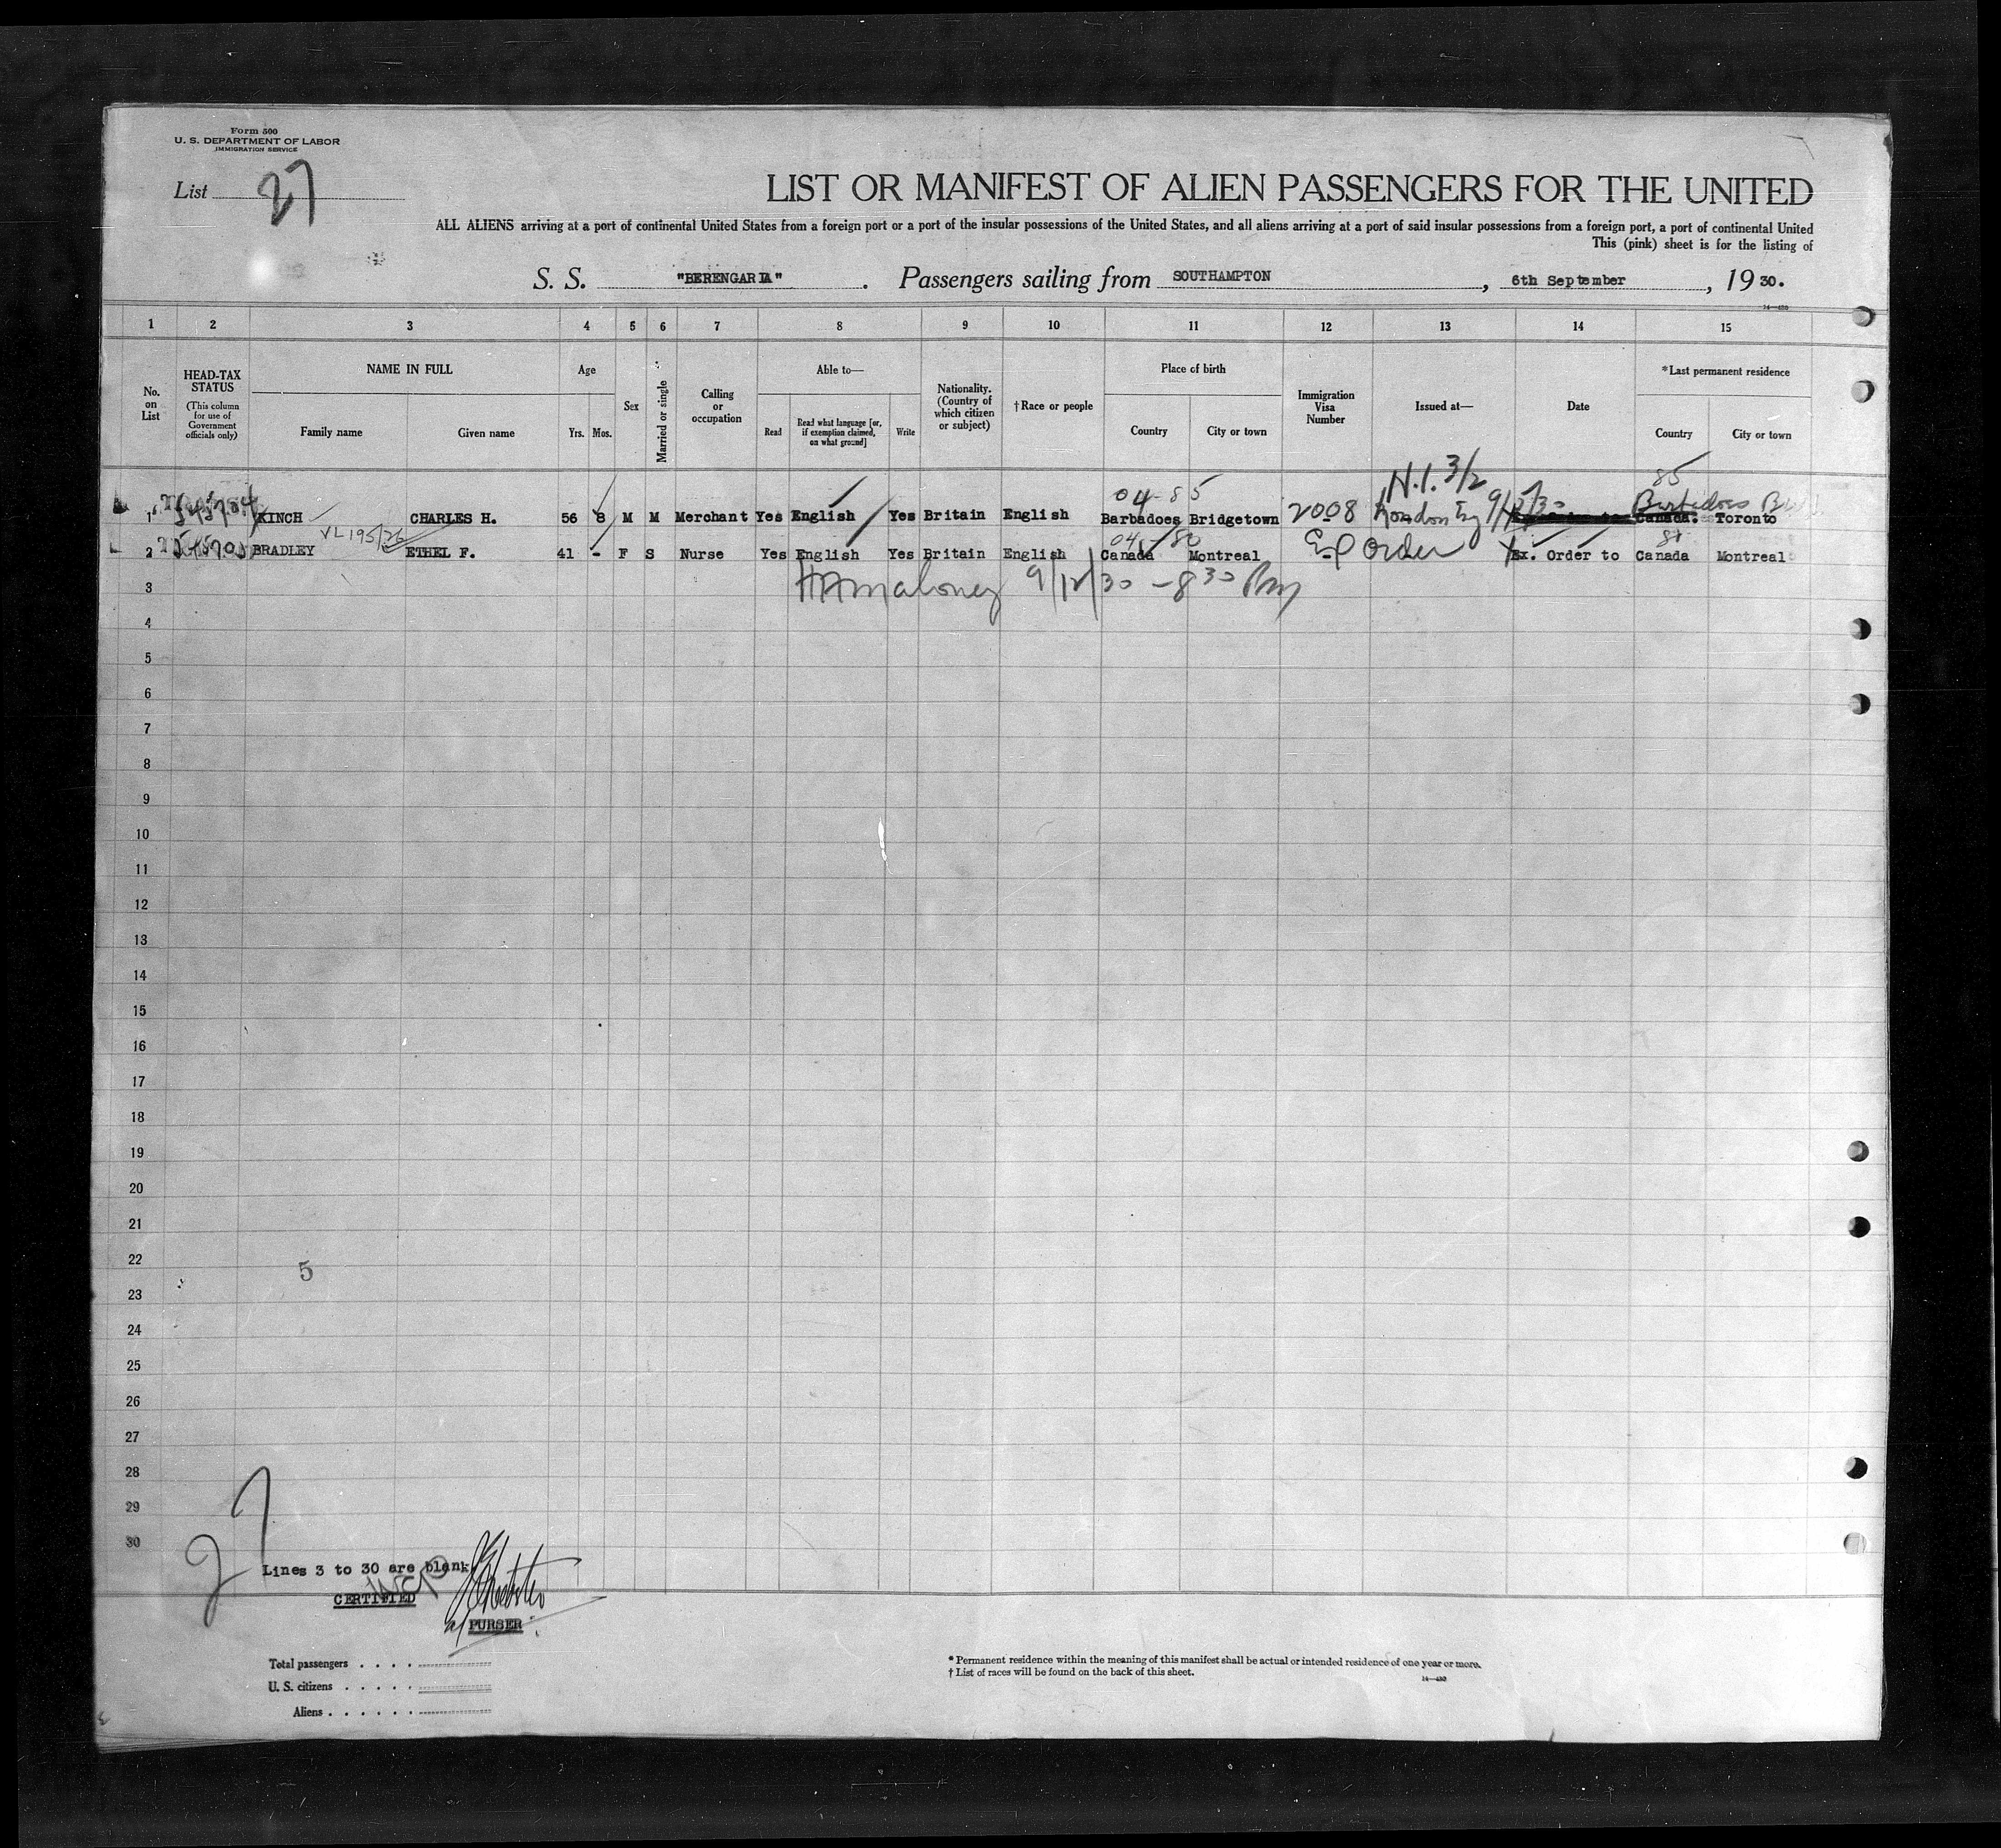 Form 500
U. S. DEPARTMENT OF LABOR
IMMIGRATION SERVICE
List 27
LIST OR MANIFEST OF ALIEN PASSENGERS FOR THE UNITED
ALL ALIENS arriving at a port of continental United States from a foreign port or a port of the insular possessions of the United States, and all aliens arriving at a port of said insular possessions from a foreign port, a port of continental United
This (pink) sheet is for the listing of
S. S. "BERENGARIA". Passengers sailing from SOUTHAMPTON, 6th September, 1930.
1 2 3 4 5 6 7 8 9 10 11 12 13 14 15
No. on List
HEAD-TAX STATUS
(This column for use of Government officials only)
NAME IN FULL
Family name Given name
Age
Yrs. Mos.
Sex
Married or single
Calling or occupation
Able to—
Read
Read what language [or, if exemption claimed, on what ground]
Write
Nationality. (Country of which citizen or subject)
†Race or people
Place of birth
Country City or town
Immigration Visa Number
Issued at—
Date
*Last permanent residence
Country City or town
H.I. 3/2
04-85 85
1 KINCH CHARLES H. 56 8 M M Merchant Yes English Yes Britain English Barbadoes Bridgetown 2008 London Barbadoes Canada. Toronto
VL195/26
04-80 81
2 BRADLEY ETHEL F. 41 - F S Nurse Yes English Yes Britain English Canada Montreal Order Ex. Order to Canada Montreal
3 Maloney 9/12/30 - 8 30 Pm
4
5
6
7
8
9
10
11
12
13
14
15
16
17
18
19
20
21
22
5
23
24
25
26
27
28
29
30
27
Lines 3 to 30 are blank
CERTIFIED
PURSER
Total passengers
U. S. citizens
Aliens
* Permanent residence within the meaning of this manifest shall be actual or intended residence of one year or more.
† List of races will be found on the back of this sheet.
14—430